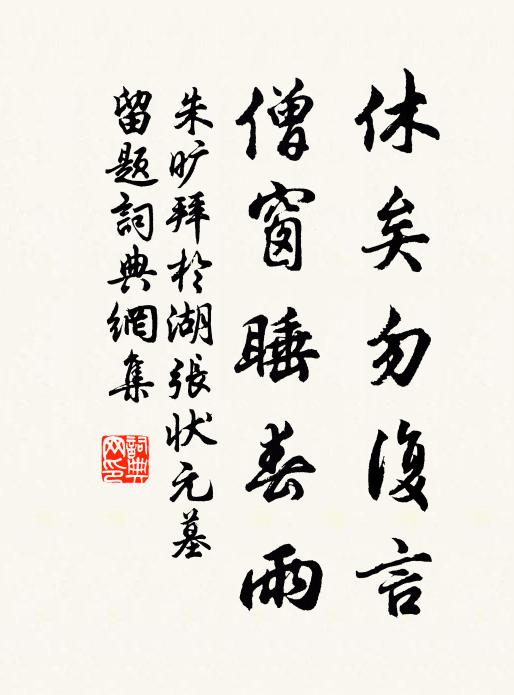 休矣勿復言
僧窗睡春雨
朱旷拜於湖張状元墓
留题詞典網集
詞典网印